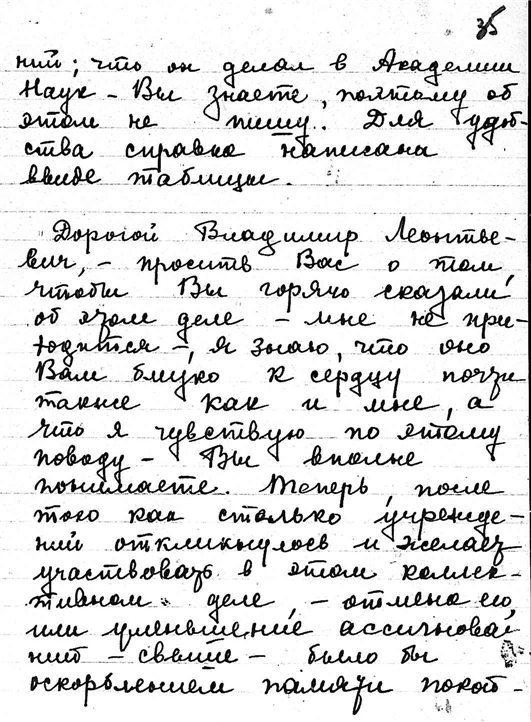 35
ний; что он делал в Академии
Наук – Вы знаете, поэтому об
этом не пишу. Для удоб-
ства справка написана
ввиде таблицы.
Дорогой Владимир Леонтье-
вич, – просить Вас о том,
чтобы Вы горячо сказали
об этом деле – мне не при-
ходится –, я знаю, что оно
Вам близко к сердцу почти
также как и мне, а
что я чувствую по этому
поводу – Вы вполне
понимаете. Теперь, после
того как столько учрежде-
ний откликнулось и желает
участвовать в этом коллек-
тивном деле, – отмена его,
или уменьшение ассигнова-
ний – свыше – было бы
оскорблением памяти покой-